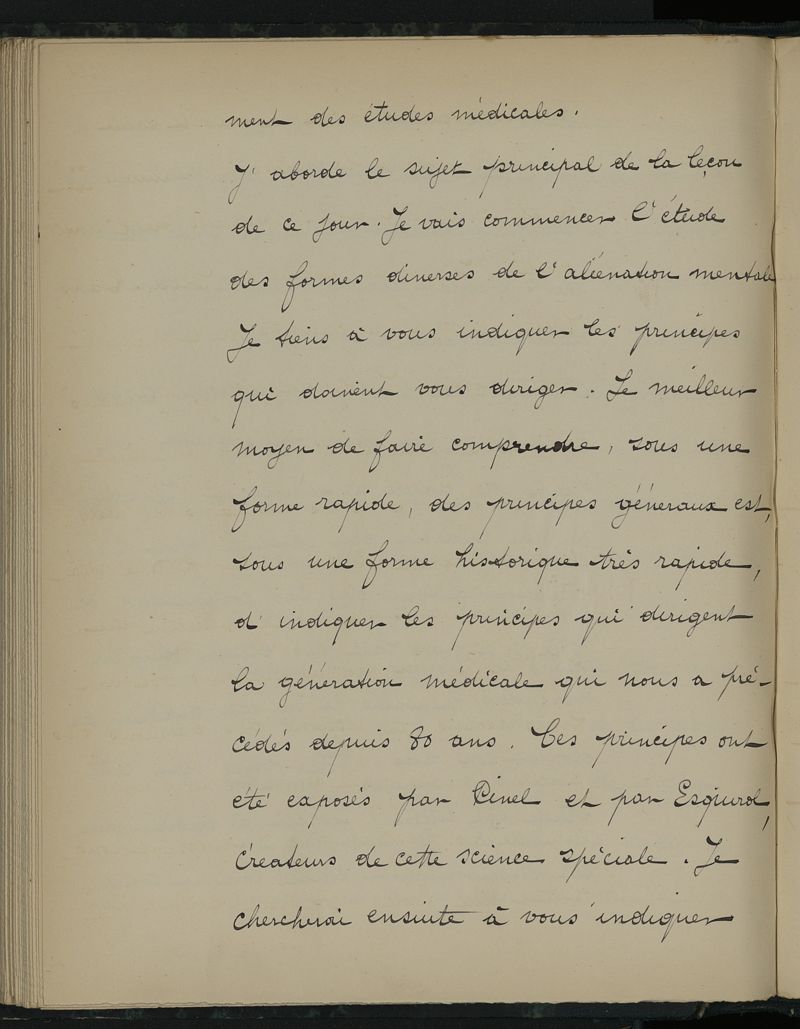 ment des études médicales.
J'aborde le sujet principal de la leçon
de ce jour. Je vais commencer l'étude
des formes diverses de l'aliénation mentale
Je tiens à vous indiquer les principes
qui doivent vous diriger. Le meilleur
moyen de faire comprendre, sous une
forme rapide, des principes généraux est,
sous une forme historique très rapide,
d'indiquer les principes qui dirigent
la génération médicale qui nous a pré-
cédés depuis 80 ans. Ces principes ont
été exposés par Pinel et par Esquirol,
créateurs de cette science spéciale. Je
chercherai ensuite à vous indiquer